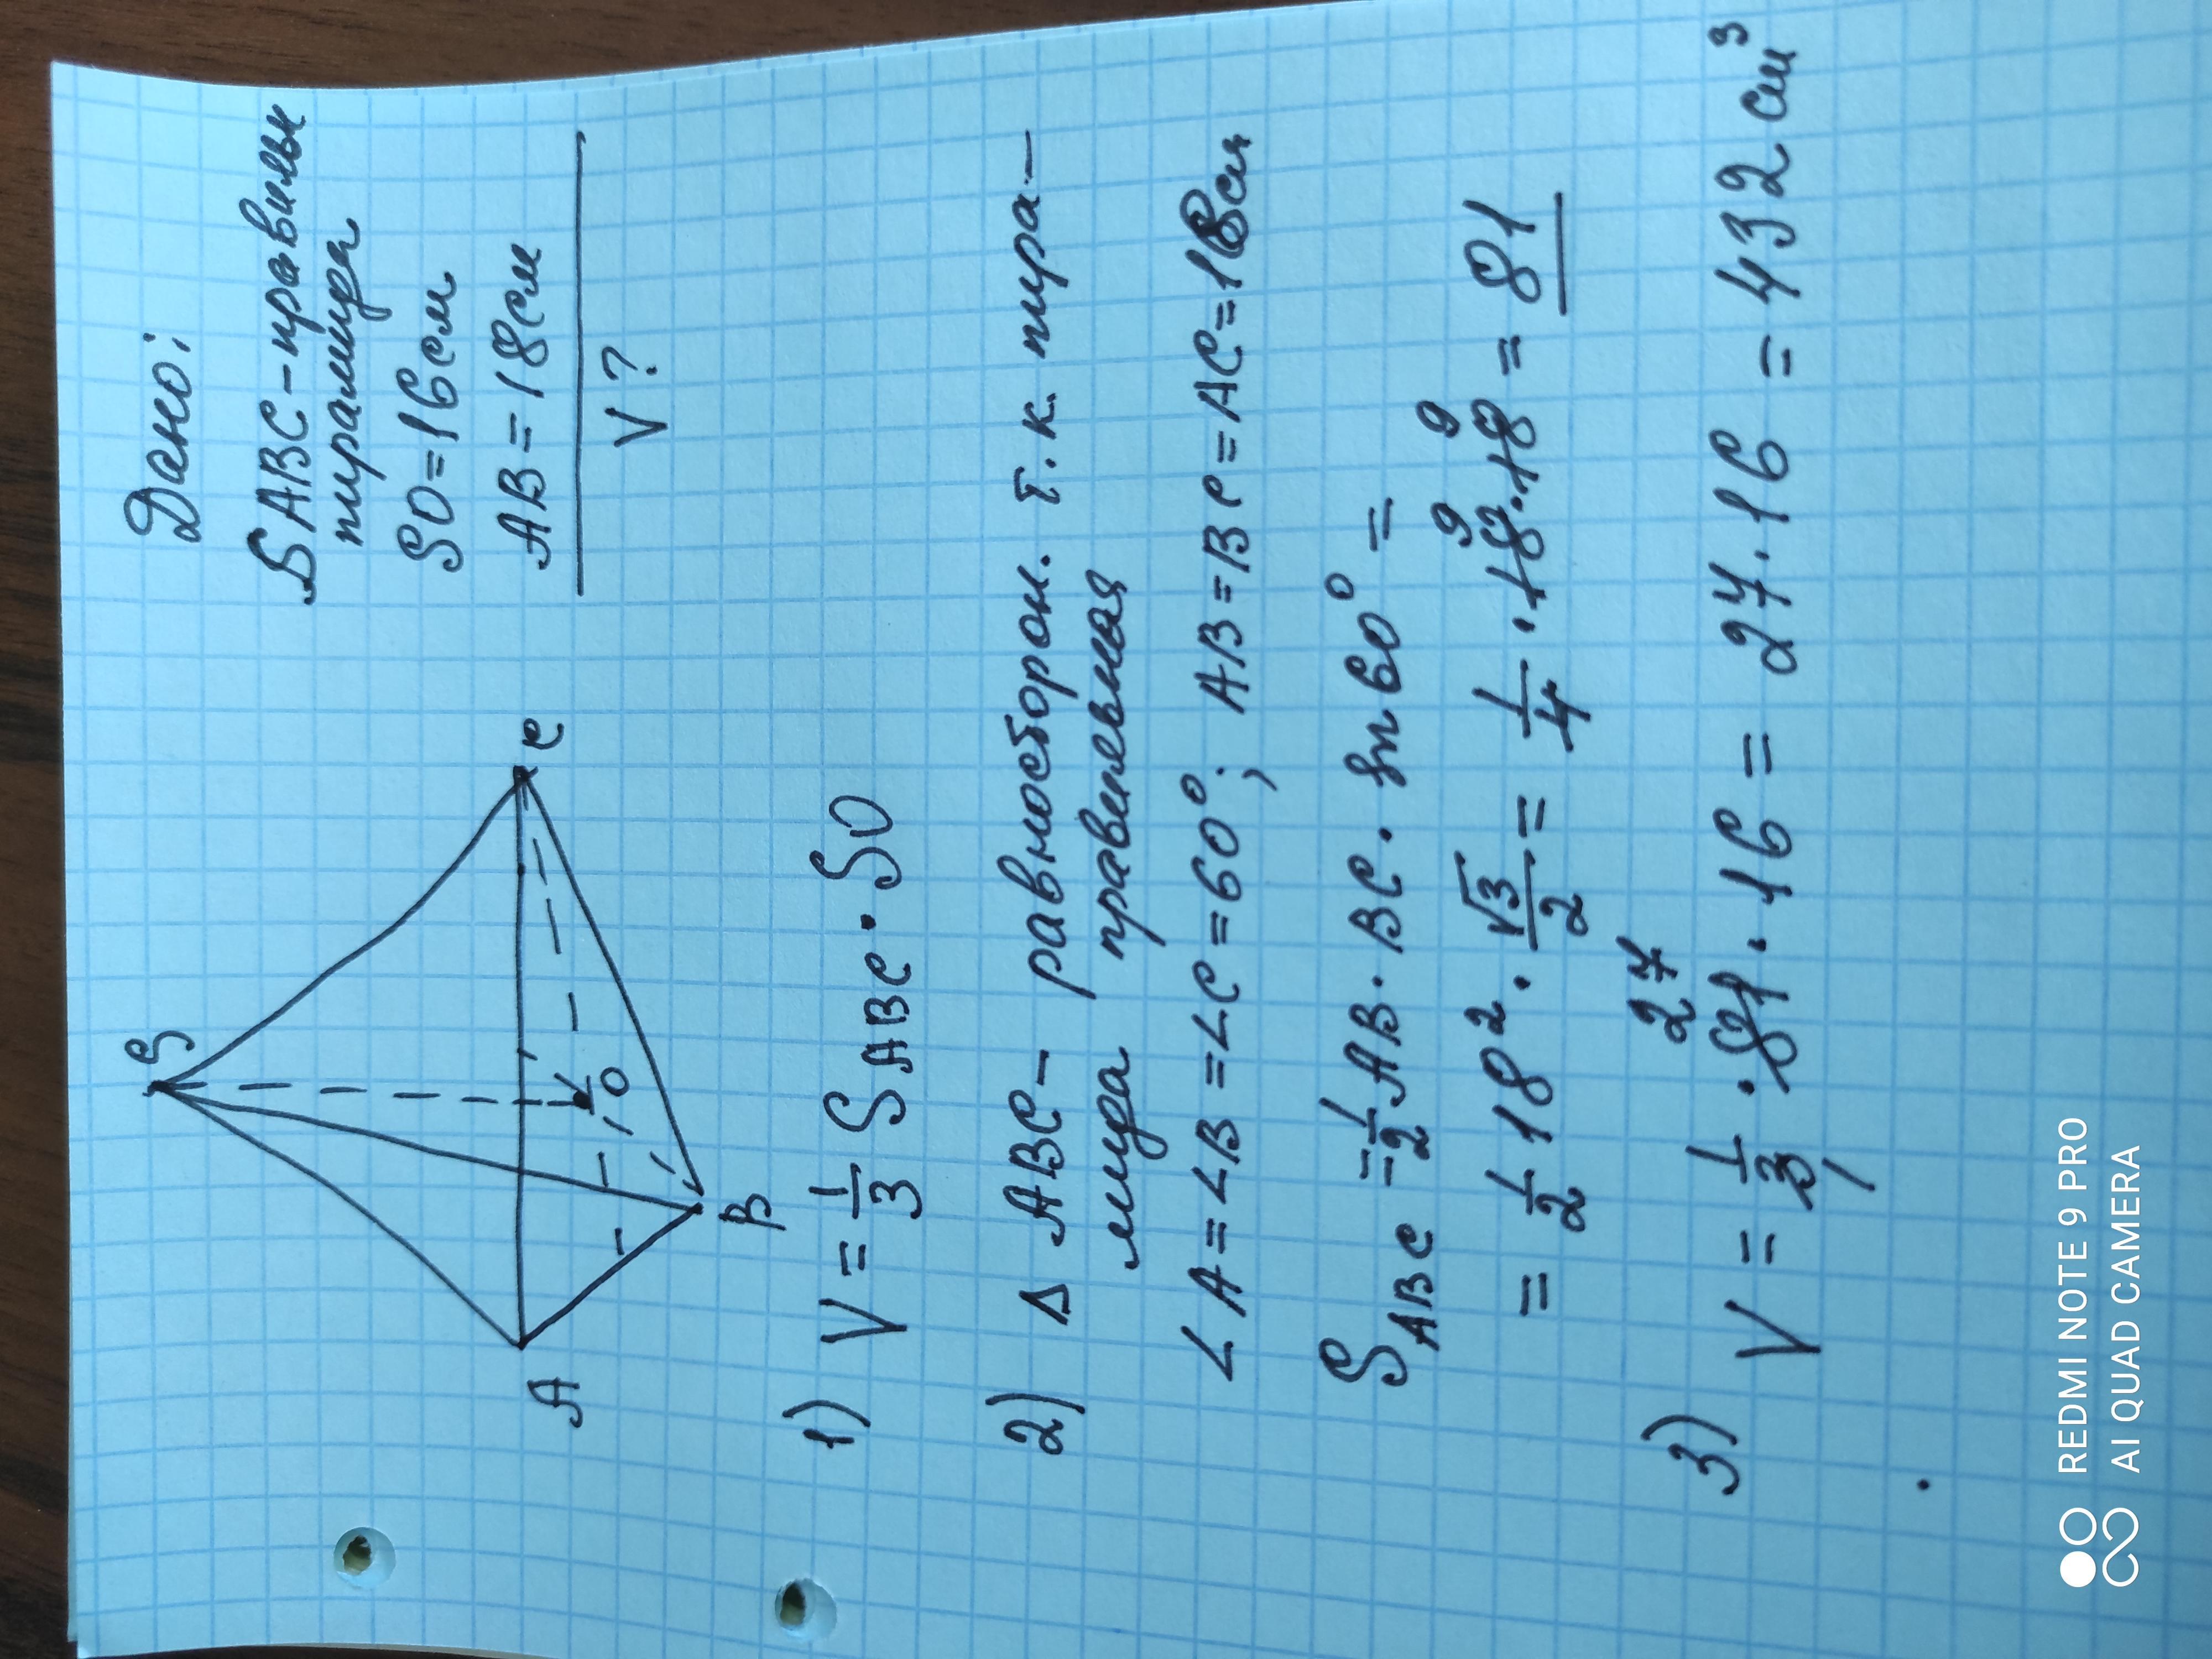 S
A
B
C
O
Дано:
SABC - правильн
пирамида
SO = 16 см
AB = 18 см
V ?
1) V = 1/3 S ABC · SO
2) Δ ABC - равносторон. т.к. пира-
мида правильная
∠A = ∠B = ∠C = 60°; AB = BC = AC = 18 см
S ABC = 1/2 AB · BC · sin 60° =
= 1/2 18² · √3/2 = 1/4 · 18 9 · 18 9 = 81
3) V = 1/3 · 81 27 · 16 = 27 · 16 = 432 см³
REDMI NOTE 9 PRO
AI QUAD CAMERA